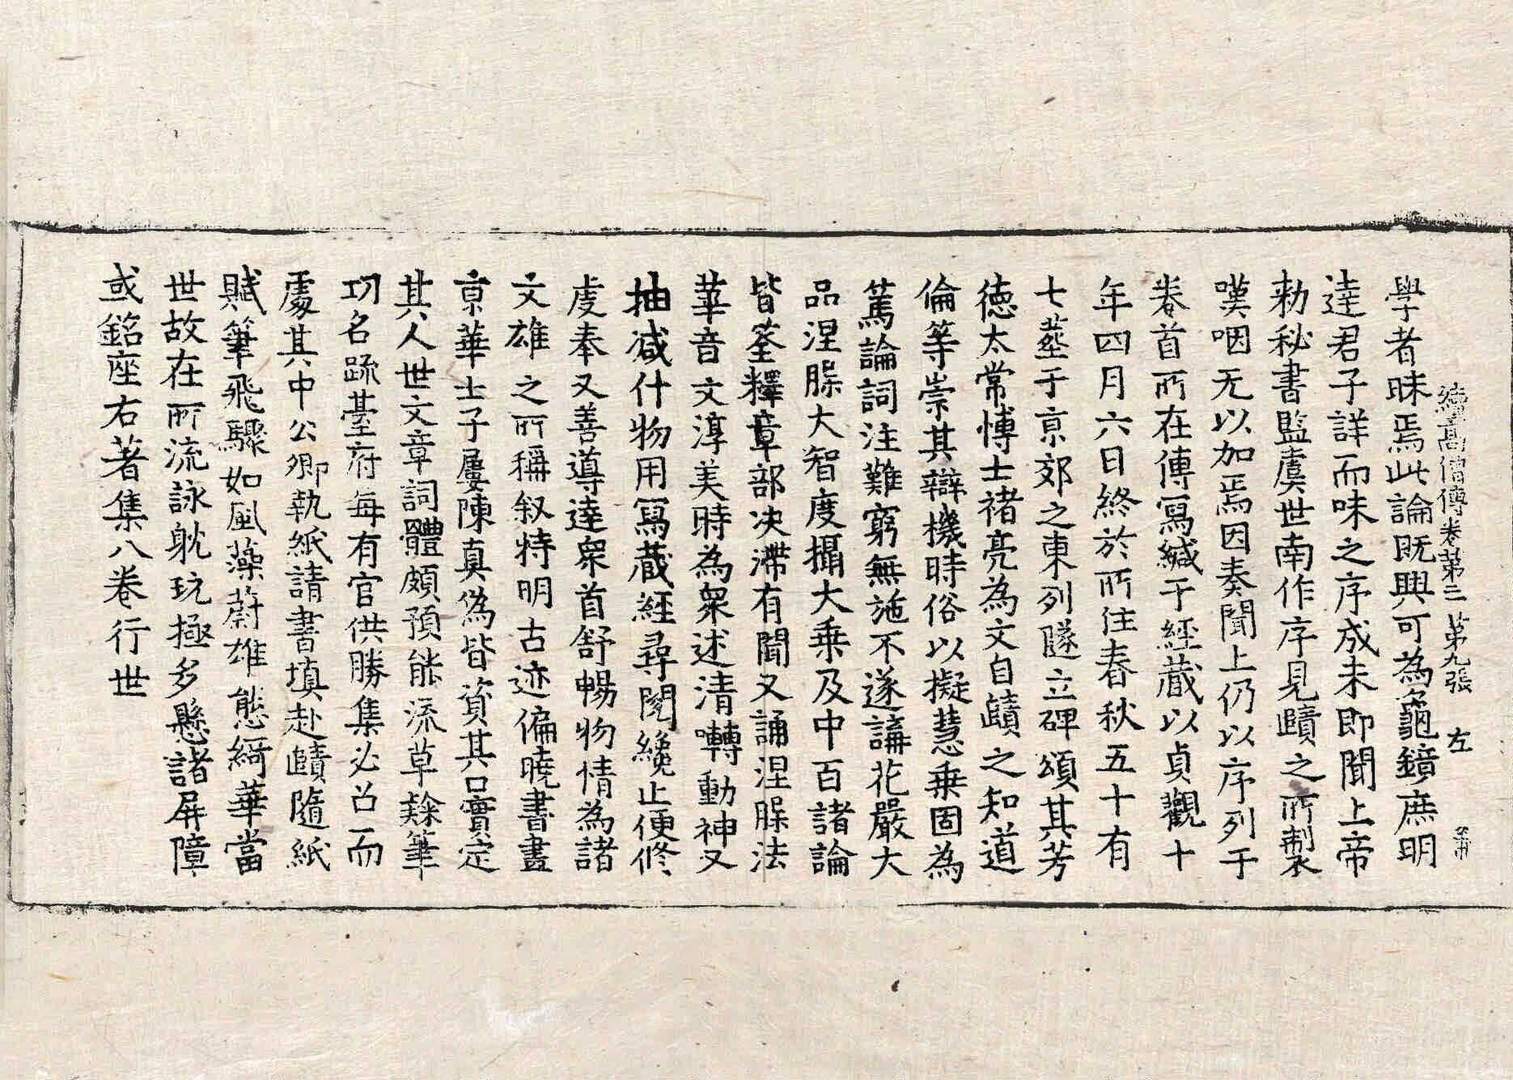 續高僧傳卷第三 第九張 左
學者昧焉此論既興可為龜鏡庶明
達君子詳而味之序成未即聞上帝
勑秘書監虞世南作序見賾之所製
嘆咽无以加焉因奏聞上仍以序列于
卷首所在傳寫緘于經藏以貞觀十
年四月六日終於所住春秋五十有
七葬于京郊之東列隧立碑頌其芳
德太常博士褚亮為文自賾之知道
倫等崇其辯機時俗以擬慧乘固為
篤論詞注難窮無施不遂講花嚴大
品涅槃大智度攝大乘及中百諸論
皆筌釋章部决滯有聞又誦涅槃法
華音文淳美時為眾述清囀動神又
抽減什物用寫藏經尋閱纔止便修
虔奉又善導達眾首舒暢物情為諸
文雄之所稱叙特明古迹偏曉書畫
京華士子屢陳真偽皆資其口實定
其人世文章詞體頗預能流草隸筆
功名疏臺府每有官供勝集必召而
處其中公卿執紙請書填赴賾隨紙
賦筆飛驟如風藻蔚雄態綺華當
世故在所流詠躭玩極多懸諸屏障
或銘座右著集八卷行世